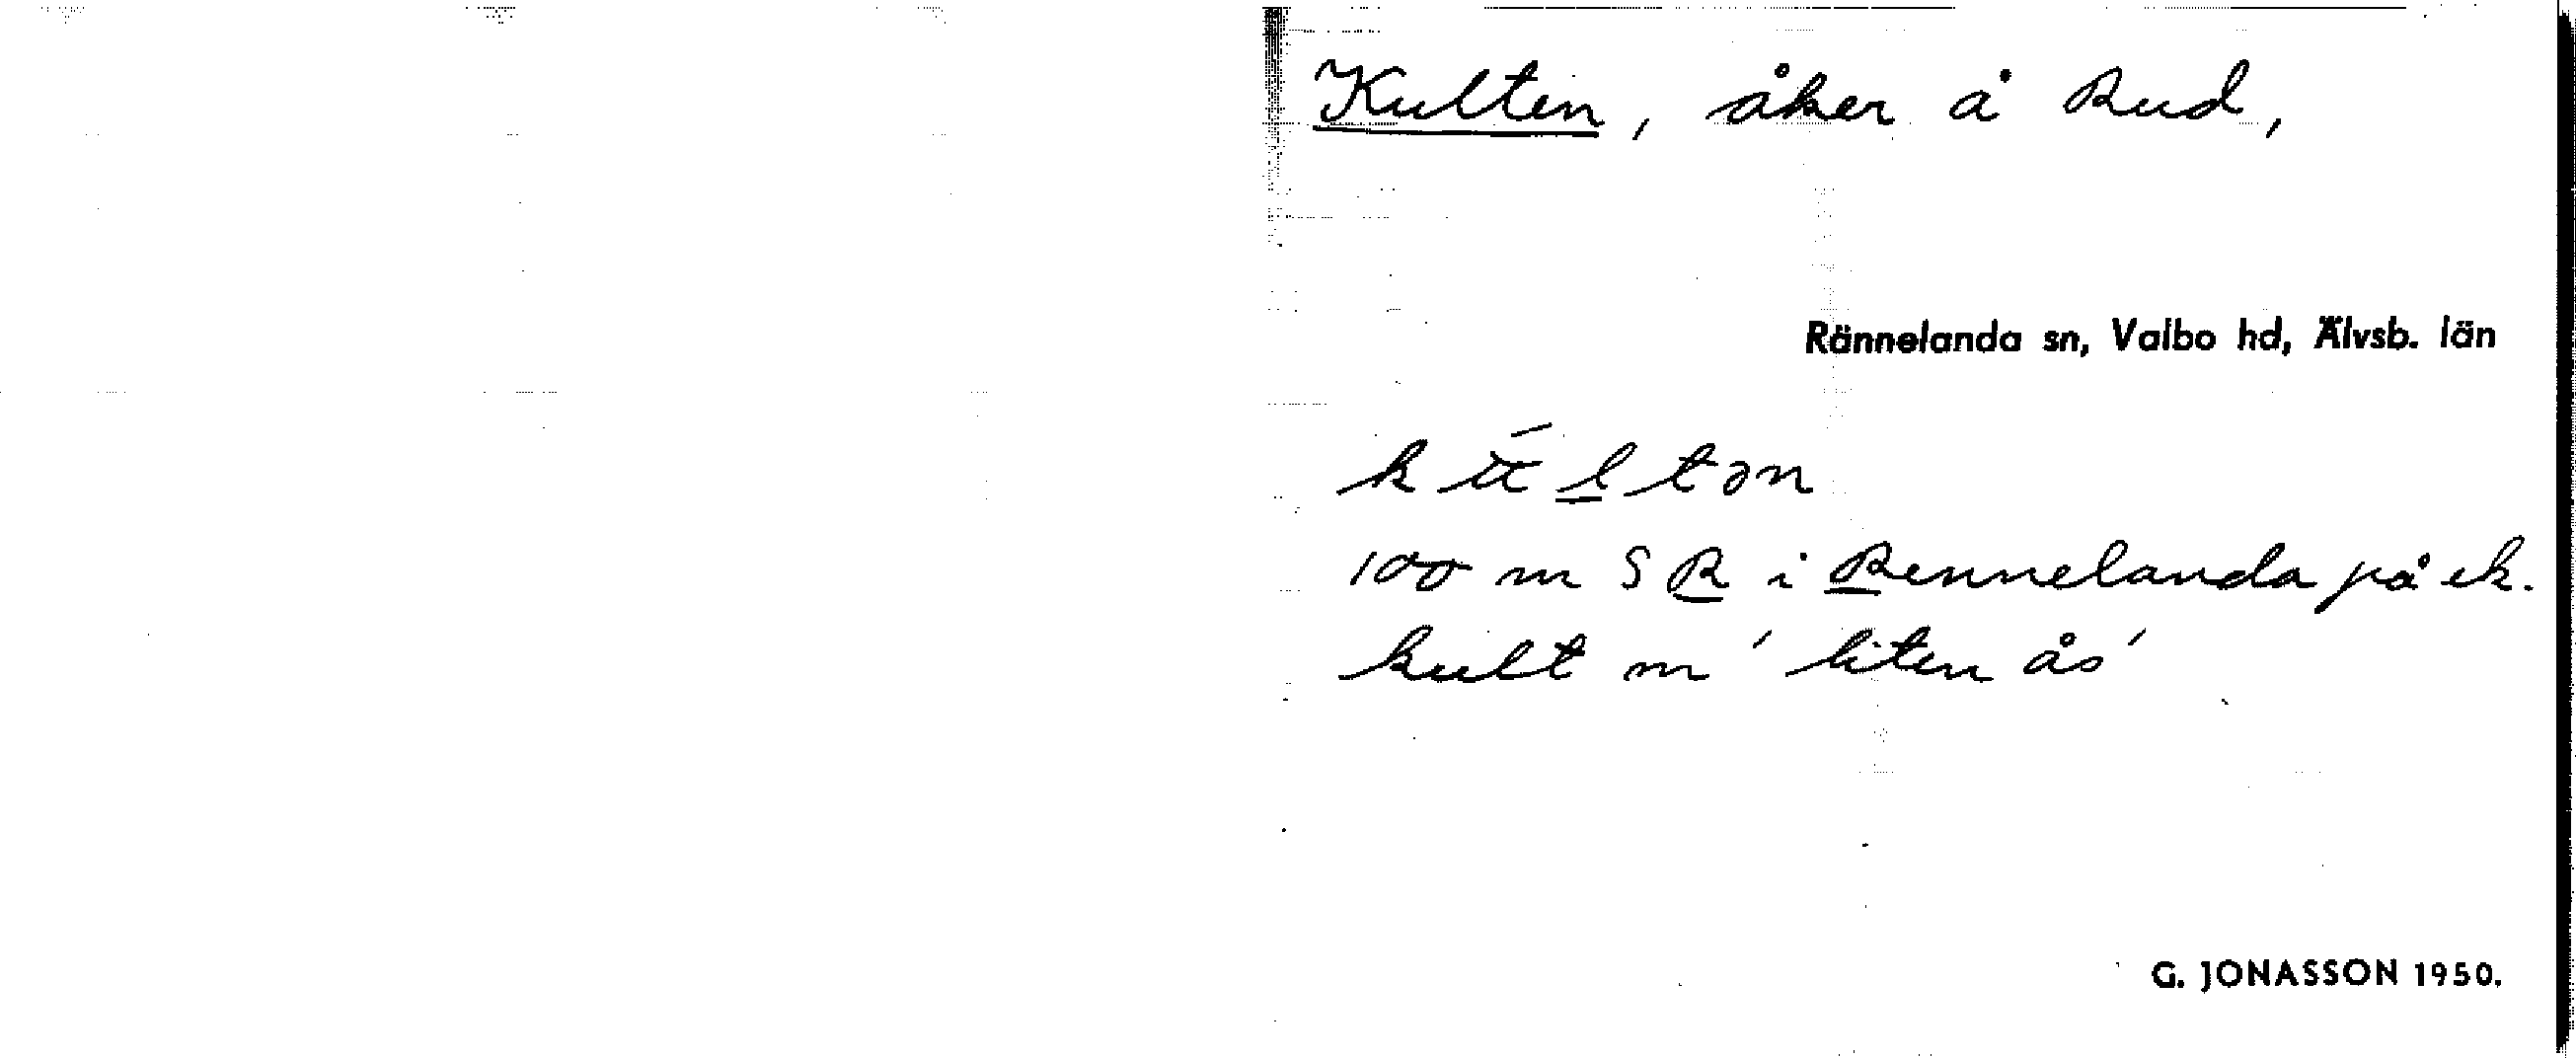 Kulten, åker å Rud,
Rännelanda sn, Valbo hd, Älvsb. län
100 m S R i Rennelanda på ek.
kult m ' liten ås '
G. JONASSON 1950.